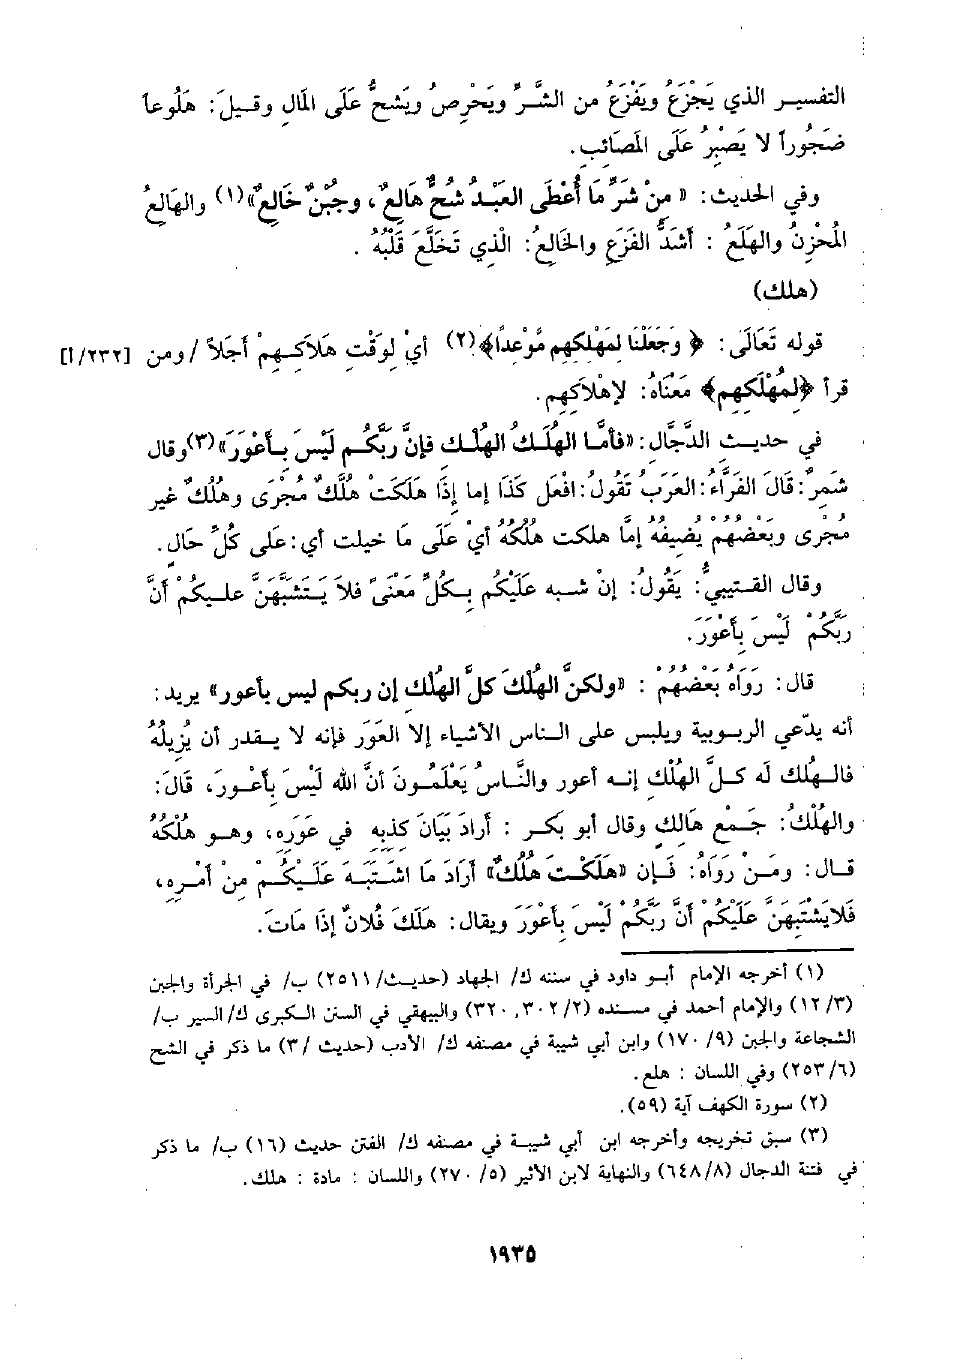 التفسير الذي يَجْزَعُ ويَفْزَعُ من الشَّرِّ ويَحْرِصُ ويَشحُّ عَلَى المَالِ وقيلَ: هَلُوعاً
ضَجُوراً لا يَصْبِرُ عَلَى المَصَائِبِ.
وفي الحديث: «مِنْ شَرِّ مَا أُعْطَى العَبْدُ شُحٌّ هَالِعٌ، وجُبْنٌ خَالِعٌ»(١) والهَالِعُ
المُحْزِنُ والهَلَعُ : أشَدُّ الفَزَعِ والخَالِعُ: الَّذِي تَخَلَّعَ قَلْبُهُ .
(هلك)
قوله تَعَالَى: ﴿ وَجَعَلْنَا لِمَهْلِكِهِم مَّوْعِداً﴾(٢) أيْ لِوَقْتِ هَلَاكِهِمْ أجَلاً /ومن [٢٣٢/أ]
قرأ ﴿لِمُهْلَكِهِم﴾ مَعْنَاهُ: لإهْلَاكِهِم.
في حديث الدَّجَّال: «فأمَّا الهُلَكُ الهُلَّك فإنَّ رَبَّكُم لَيْسَ بِأعْوَرَ»(٣)وقال
شَمِرٌ: قَالَ الفَرَّاءُ: العَرَبُ تَقُولُ: افْعَل كَذَا إما إذَا هَلَكَتْ هُلُكٌ مُجْرًى وهُلُكُ غير
مُجْرًى وبَعْضُهُمْ يُضِيفُه إمَّا هلكت هُلُكُهُ أيْ عَلَى مَا خيلت أي: على كُلِّ حَالٍ.
وقال القتيبيُّ: يَقُولُ: إنْ شبه عَلَيْكُم بِكُلِّ مَعْنًى فلَا يَتَشَبَّهَنَّ عليكُمْ أنَّ
رَبَّكُمْ لَيْسَ بِأعْوَرَ.
قال: رَوَاهُ بَعْضُهُمْ : «ولكنَّ الهُلْكَ كلَّ الهُلْكِ إن ربكم ليس بأعور» يريد:
أنه يدّعي الربوبية ويلبس على الناس الأشياء إلا العَوَرَ فإنه لا يقدر أن يُزِيلَهُ
فالهُلك لَه كلَّ الهُلْكِ إنه أعور والنَّاسُ يَعْلَمُونَ أنَّ الله لَيْسَ بِأعْورَ، قَالَ:
والهُلْكُ: جَمْع هَالِكٍ وقال أبو بكر : أرَادَ بَيَانَ كَذِبِهِ في عَوَرِهِ، وهو هُلْكُهُ
قال: ومَنْ رَوَاهُ: فَإن «هَلَكَتْ هُلُكٌ» أرَادَ مَا اشْتَبَهَ عَلَيْكُمْ مِنْ أمْرِهِ،
فَلَايَشْتَبِهَنَّ عَلَيْكُمْ أنَّ رَبَّكُمْ لَيْسَ بِأعْوَرَ ويقال: هَلَكَ فُلَانٌ إذَا مَاتَ.
(١) أخرجه الإمام أبو داود في سننه ك/ الجهاد (حديث/ ٢٥١١) ب/ في الجرأة والجبن
(١٢/٣) والإمام أحمد في مسنده (٢/ ٣٠٢, ٣٢٠) والبيهقي في السنن الكبرى ك/ السير ب/
الشجاعة والجبن (٩/ ١٧٠) وابن أبي شيبة في مصنفه ك/ الأدب (حديث /٣) ما ذكر في الشح
(٢٥٣/٦) وفي اللسان : هلع.
(٢) سورة الكهف آية (٥٩).
(٣) سبق تخريجه وأخرجه ابن أبي شيبة في مصنفه ك/ الفتن حديث (١٦) ب/ ما ذكر
في فتنة الدجال (٦٤٨/٨) والنهاية لابن الأثير (٥/ ٢٧٠) واللسان : مادة : هلك.
١٩٣٥